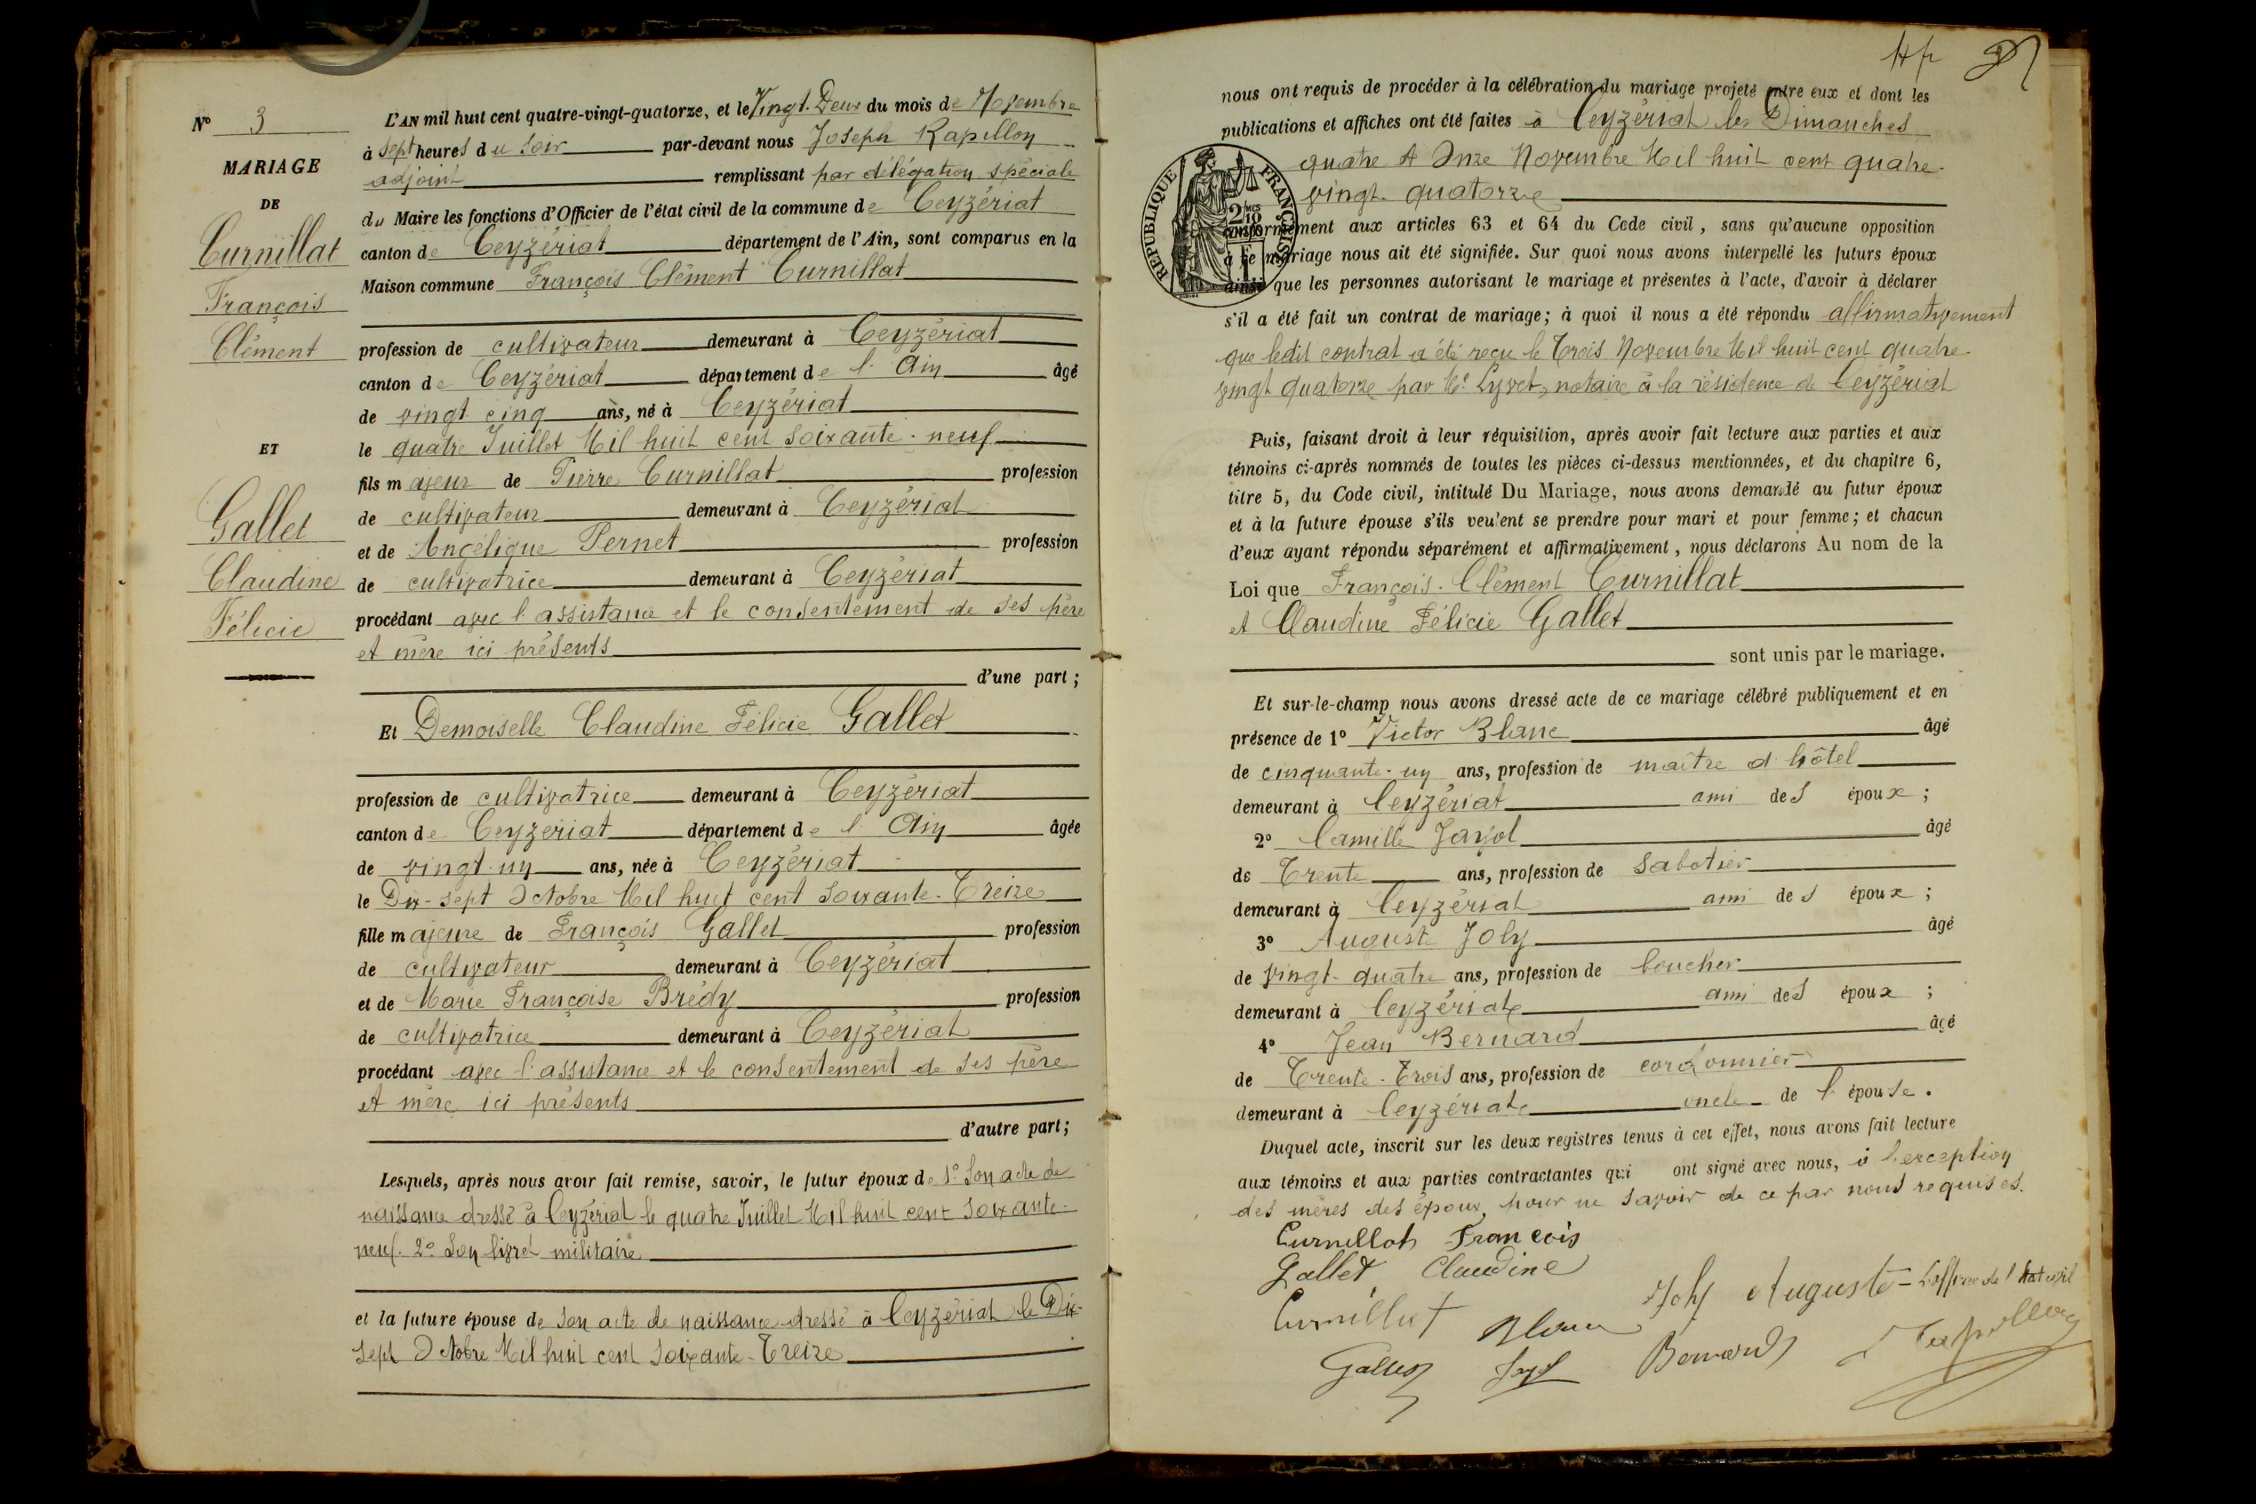 N° 3
MARIAGE
DE
Curnillat
François
Clément
ET
Gallet
Claudine
Félicie
L'AN mil huit cent quatre-vingt-quatorze, et le Vingt-Deux du mois de Novembre
à sept heures du soir par-devant nous Joseph Rapillon
adjoint remplissant par délégation spéciale
du Maire les fonctions d'Officier de l'état civil de la commune de Ceyzériat
canton de Ceyzériat département de l'Ain, sont comparus en la
Maison commune François Clément Curnillat
profession de cultivateur demeurant à Ceyzériat
canton de Ceyzériat département de l'Ain âgé
de vingt cinq ans, né à Ceyzériat
le quatre Juillet Mil huit cent soixante-neuf
fils majeur de Pierre Curnillat profession
de cultivateur demeurant à Ceyzériat
et de Angélique Pernet profession
de cultivatrice demeurant à Ceyzériat
procédant avec l'assistance et le consentement de ses père
et mère ici présents
d'une part;
Et Demoiselle Claudine Félicie Gallet
profession de cultivatrice demeurant à Ceyzériat
canton de Ceyzériat département de l'Ain âgée
de vingt-un ans, née à Ceyzériat
le Dix-sept Octobre Mil huit cent soixante-Treize
fille majeure de François Gallet profession
de cultivateur demeurant à Ceyzériat
et de Marie Françoise Brédy profession
de cultivatrice demeurant à Ceyzériat
procédant avec l'assistance et le consentement de ses père
et mère ici présents
d'autre part;
Lesquels, après nous avoir fait remise, savoir, le futur époux de 1° Son acte de
naissance dressé à Ceyzériat le quatre Juillet Mil huit cent soixante-
neuf. 2° Son livret militaire
et la future épouse de son acte de naissance dressé à Ceyzériat le Dix-
sept Octobre Mil huit cent soixante-Treize
nous ont requis de procéder à la célébration du mariage projeté entre eux et dont les
publications et affiches ont été faites à Ceyzériat les Dimanches
quatre et Onze Novembre Mil huit cent quatre-
vingt-quatorze
RÉPUBLIQUE FRANÇAISE
conformément aux articles 63 et 64 du Code civil, sans qu'aucune opposition
à ce mariage nous ait été signifiée. Sur quoi nous avons interpellé les futurs époux
ainsi que les personnes autorisant le mariage et présentes à l'acte, d'avoir à déclarer
s'il a été fait un contrat de mariage; à quoi il nous a été répondu affirmativement
que ledit contrat a été reçu le Trois Novembre Mil huit cent quatre-
vingt quatorze par Me Lyvet, notaire à la résidence de Ceyzériat
Puis, faisant droit à leur réquisition, après avoir fait lecture aux parties et aux
témoins ci-après nommés de toutes les pièces ci-dessus mentionnées, et du chapitre 6,
titre 5, du Code civil, intitulé Du Mariage, nous avons demandé au futur époux
et à la future épouse s'ils veulent se prendre pour mari et pour femme; et chacun
d'eux ayant répondu séparément et affirmativement, nous déclarons Au nom de la
Loi que François-Clément Curnillat
et Claudine Félicie Gallet
sont unis par le mariage.
Et sur-le-champ nous avons dressé acte de ce mariage célébré publiquement et en
présence de 1° Victor Blanc âgé
de cinquante-un ans, profession de maître d'hôtel
demeurant à Ceyzériat ami des époux;
2° Camille Jayot âgé
de Trente ans, profession de sabotier
demeurant à Ceyzériat ami des époux;
3° Auguste Joly âgé
de vingt-quatre ans, profession de boucher
demeurant à Ceyzériat ami des époux;
4° Jean Bernard âgé
de Trente-Trois ans, profession de cordonnier
demeurant à Ceyzériat oncle de l'épouse.
Duquel acte, inscrit sur les deux registres tenus à cet effet, nous avons fait lecture
aux témoins et aux parties contractantes qui ont signé avec nous, à l'exception
des mères des époux, pour ne savoir de ce par nous requises.
Curnillat François
Gallet Claudine
Joly Auguste L'officier de l'état civil
Curnillat Blanc
Bernard Rapillon
Gallet